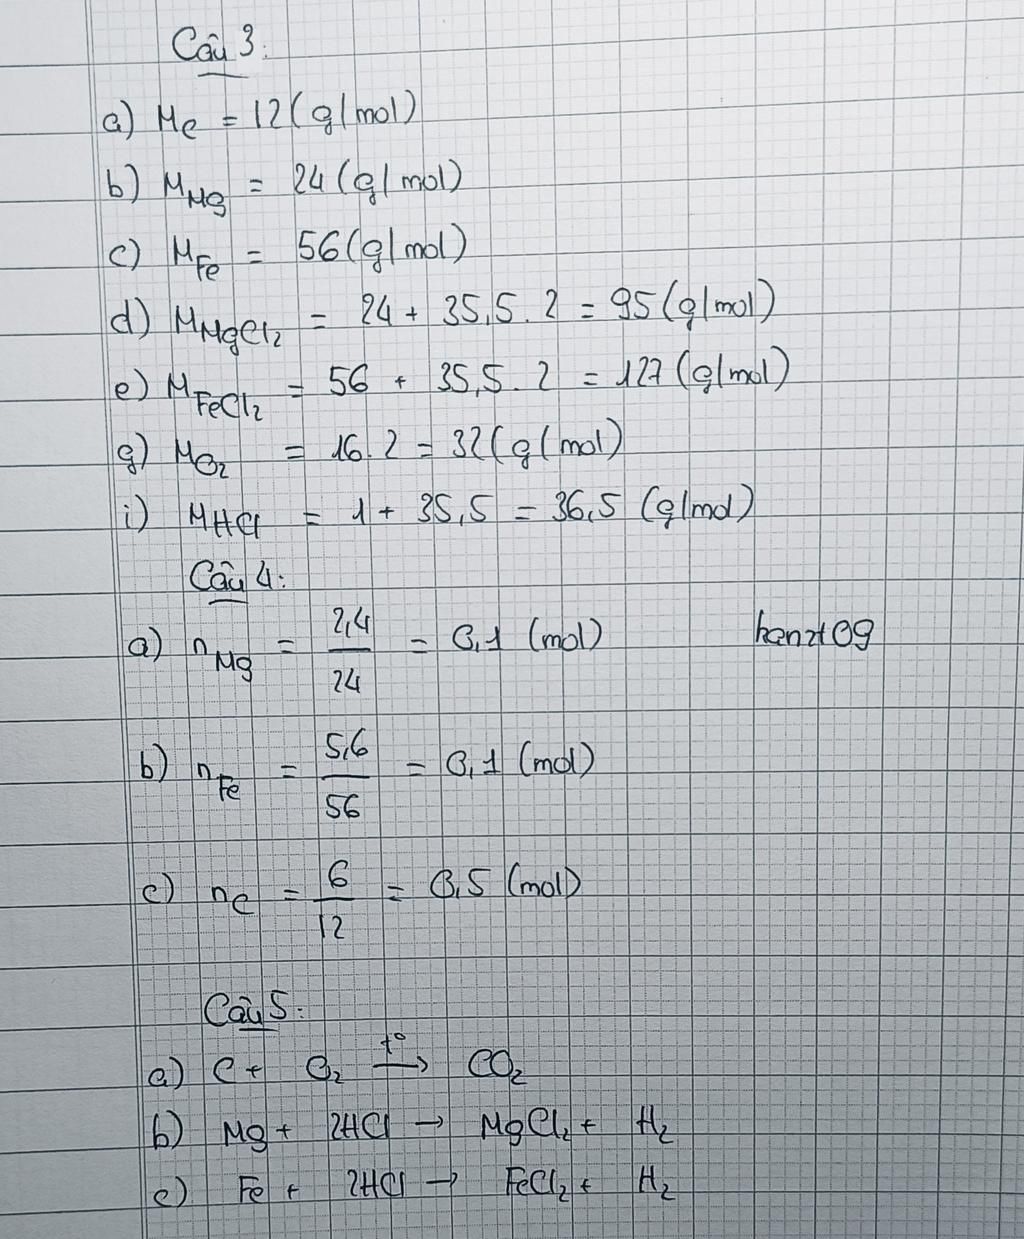 Câu 3:
a) M_C = 12 (g/mol)
b) M_Mg = 24 (g/mol)
c) M_Fe = 56 (g/mol)
d) M_MgCl₂ = 24 + 35,5 . 2 = 95 (g/mol)
e) M_FeCl₂ = 56 + 35,5 . 2 = 127 (g/mol)
g) M_O₂ = 16 . 2 = 32 (g/mol)
i) M_HCl = 1 + 35,5 = 36,5 (g/mol)
Câu 4:
a) n_Mg = 2,4/24 = 0,1 (mol) hanzt09
b) n_Fe = 5,6/56 = 0,1 (mol)
c) n_C = 6/12 = 0,5 (mol)
Câu 5:
a) C + O₂ –t°→ CO₂
b) Mg + 2HCl → MgCl₂ + H₂
c) Fe + 2HCl → FeCl₂ + H₂